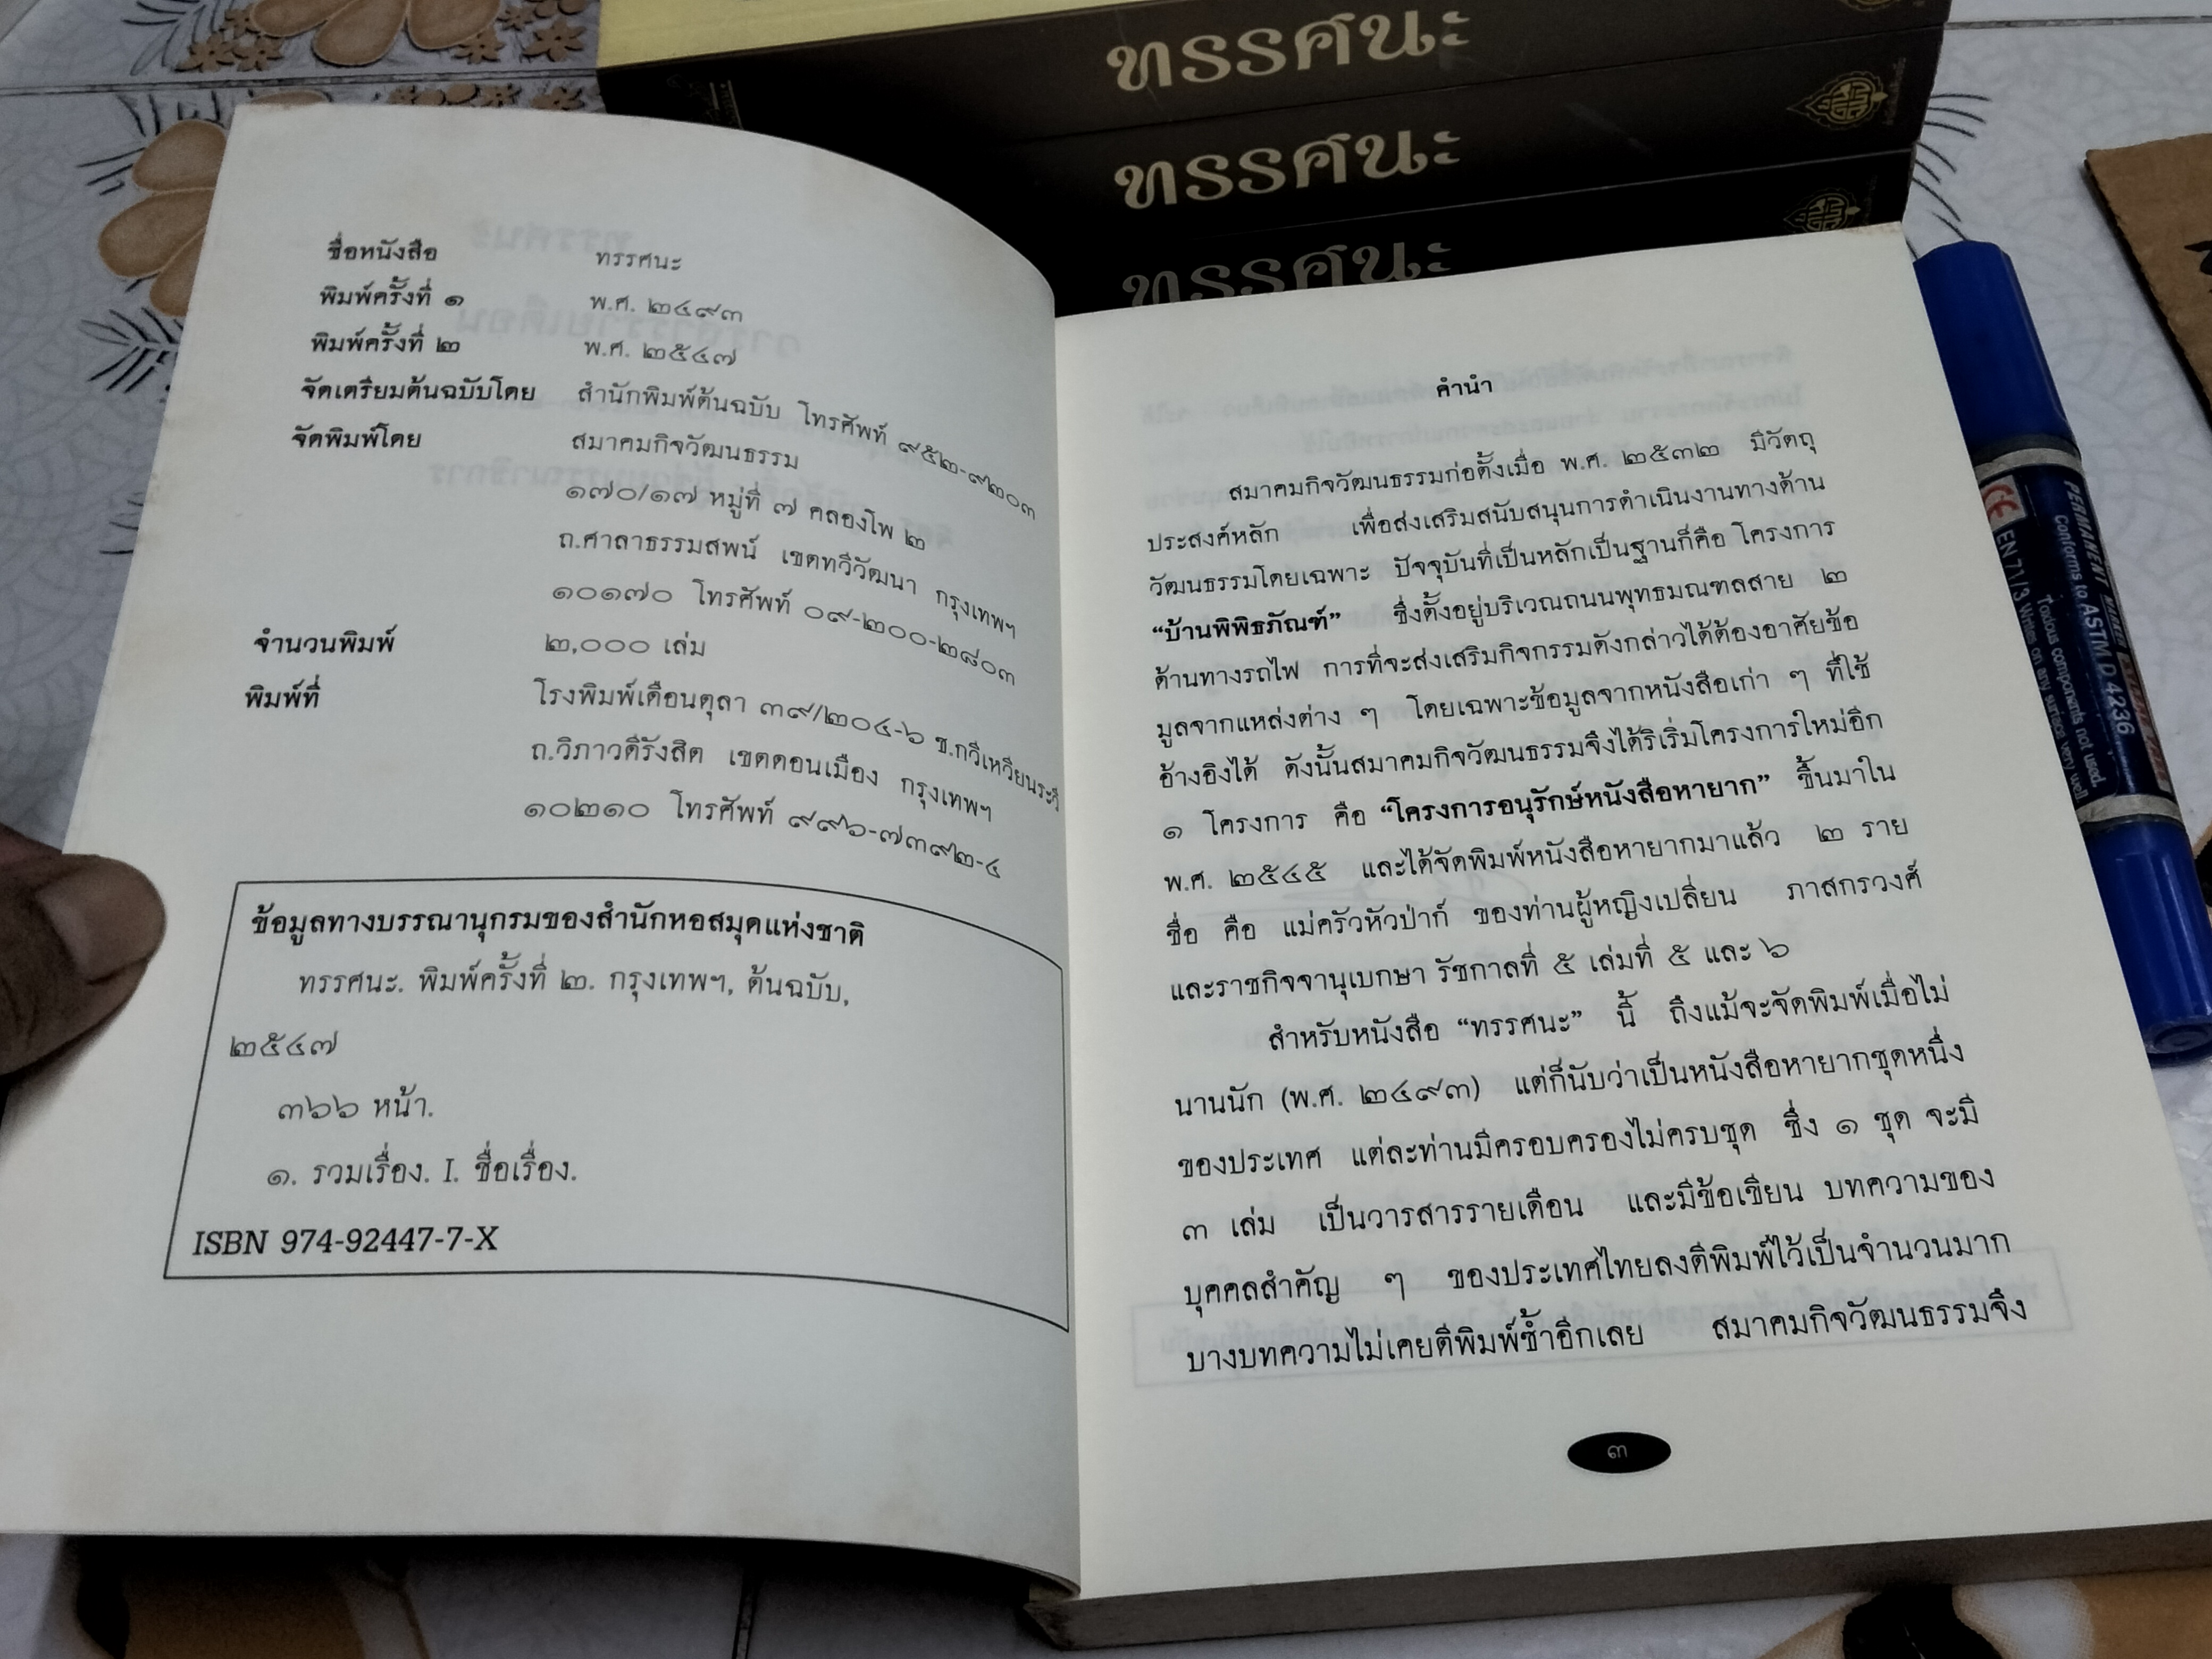 ทรรศนะ
ทรรศนะ
ทรรศนะ
ชื่อหนังสือ ทรรศนะ
พิมพ์ครั้งที่ ๑ พ.ศ. ๒๔๙๓
พิมพ์ครั้งที่ ๒ พ.ศ. ๒๕๔๗
จัดเตรียมต้นฉบับโดย สำนักพิมพ์ต้นฉบับ โทรศัพท์ ๙๕๒-๙๒๐๓
จัดพิมพ์โดย สมาคมกิจวัฒนธรรม
๑๗๐/๑๗ หมู่ที่ ๗ คลองโพ ๒
ถ.ศาลาธรรมสพน์ เขตทวีวัฒนา กรุงเทพฯ
๑๐๑๗๐ โทรศัพท์ ๐๙-๒๐๐-๒๘๐๓
จำนวนพิมพ์ ๒,๐๐๐ เล่ม
พิมพ์ที่ โรงพิมพ์เดือนตุลา ๓๙/๒๐๔-๖ ซ.กวีเหวียนระวี
ถ.วิภาวดีรังสิต เขตดอนเมือง กรุงเทพฯ
๑๐๒๑๐ โทรศัพท์ ๙๙๖-๗๓๙๒-๔
ข้อมูลทางบรรณานุกรมของสำนักหอสมุดแห่งชาติ
ทรรศนะ. พิมพ์ครั้งที่ ๒. กรุงเทพฯ, ต้นฉบับ,
๒๕๔๗
๓๖๖ หน้า.
๑. รวมเรื่อง. I. ชื่อเรื่อง.
ISBN 974-92447-7-X
คำนำ
สมาคมกิจวัฒนธรรมก่อตั้งเมื่อ พ.ศ. ๒๕๓๒ มีวัตถุ
ประสงค์หลัก เพื่อส่งเสริมสนับสนุนการดำเนินงานทางด้าน
วัฒนธรรมโดยเฉพาะ ปัจจุบันที่เป็นหลักเป็นฐานก็คือ โครงการ
“บ้านพิพิธภัณฑ์” ซึ่งตั้งอยู่บริเวณถนนพุทธมณฑลสาย ๒
ด้านทางรถไฟ การที่จะส่งเสริมกิจกรรมดังกล่าวได้ต้องอาศัยข้อ
มูลจากแหล่งต่าง ๆ โดยเฉพาะข้อมูลจากหนังสือเก่า ๆ ที่ใช้
อ้างอิงได้ ดังนั้นสมาคมกิจวัฒนธรรมจึงได้ริเริ่มโครงการใหม่อีก
๑ โครงการ คือ “โครงการอนุรักษ์หนังสือหายาก” ขึ้นมาใน
พ.ศ. ๒๕๔๕ และได้จัดพิมพ์หนังสือหายากมาแล้ว ๒ ราย
ชื่อ คือ แม่ครัวหัวป่าก์ ของท่านผู้หญิงเปลี่ยน ภาสกรวงศ์
และราชกิจจานุเบกษา รัชกาลที่ ๕ เล่มที่ ๕ และ ๖
สำหรับหนังสือ “ทรรศนะ” นี้ ถึงแม้จะจัดพิมพ์เมื่อไม่
นานนัก (พ.ศ. ๒๔๙๓) แต่ก็นับว่าเป็นหนังสือหายากชุดหนึ่ง
ของประเทศ แต่ละท่านมีครอบครองไม่ครบชุด ซึ่ง ๑ ชุด จะมี
๓ เล่ม เป็นวารสารรายเดือน และมีข้อเขียน บทความของ
บุคคลสำคัญ ๆ ของประเทศไทยลงตีพิมพ์ไว้เป็นจำนวนมาก
บางบทความไม่เคยตีพิมพ์ซ้ำอีกเลย สมาคมกิจวัฒนธรรมจึง
๓
CE EN 71/3 Writes on any surface very well
PERMANENT
Conforms to ASTM D 4236
Toxious components not used.